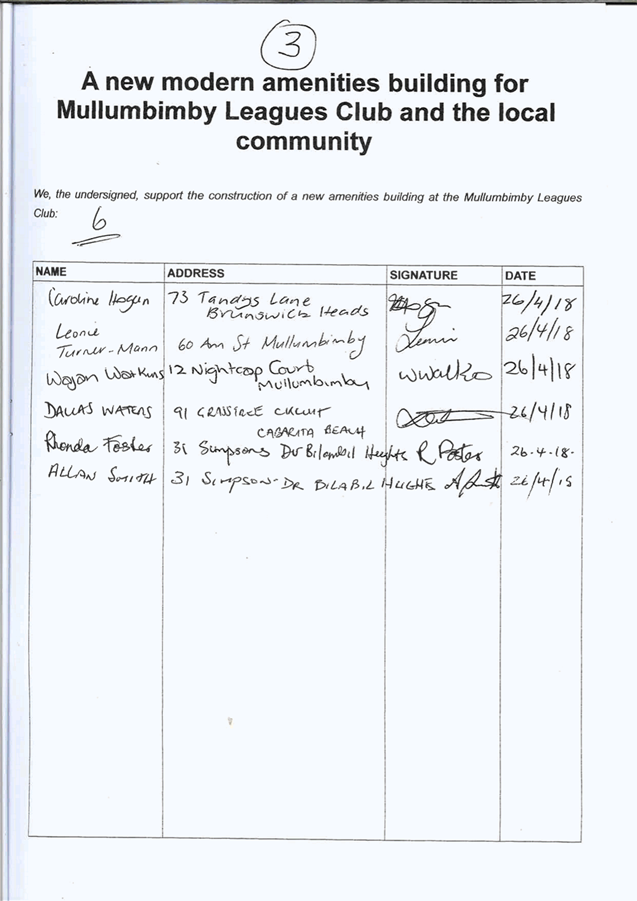 3
A new modern amenities building for
Mullumbimby Leagues Club and the local
community
We, the undersigned, support the construction of a new amenities building at the Mullumbimby Leagues
Club:
6
NAME ADDRESS SIGNATURE DATE
Caroline Hogan 73 Tandys Lane 26/4/18
Brunswick Heads
Leonie 26/4/18
Turner-Mann 60 Ann St Mullumbimby
12 Nightcap Court 26/4/18
Mullumbimby
DALLAS WATERS 91 CIRCUIT 26/4/18
CABARITA BEACH
Rhonda Foster 31 Simpsons Dr Bilambil Heights R Foster 26-4-18-
ALLAN SMITH 31 SIMPSON-DR BILABIL HUGHS